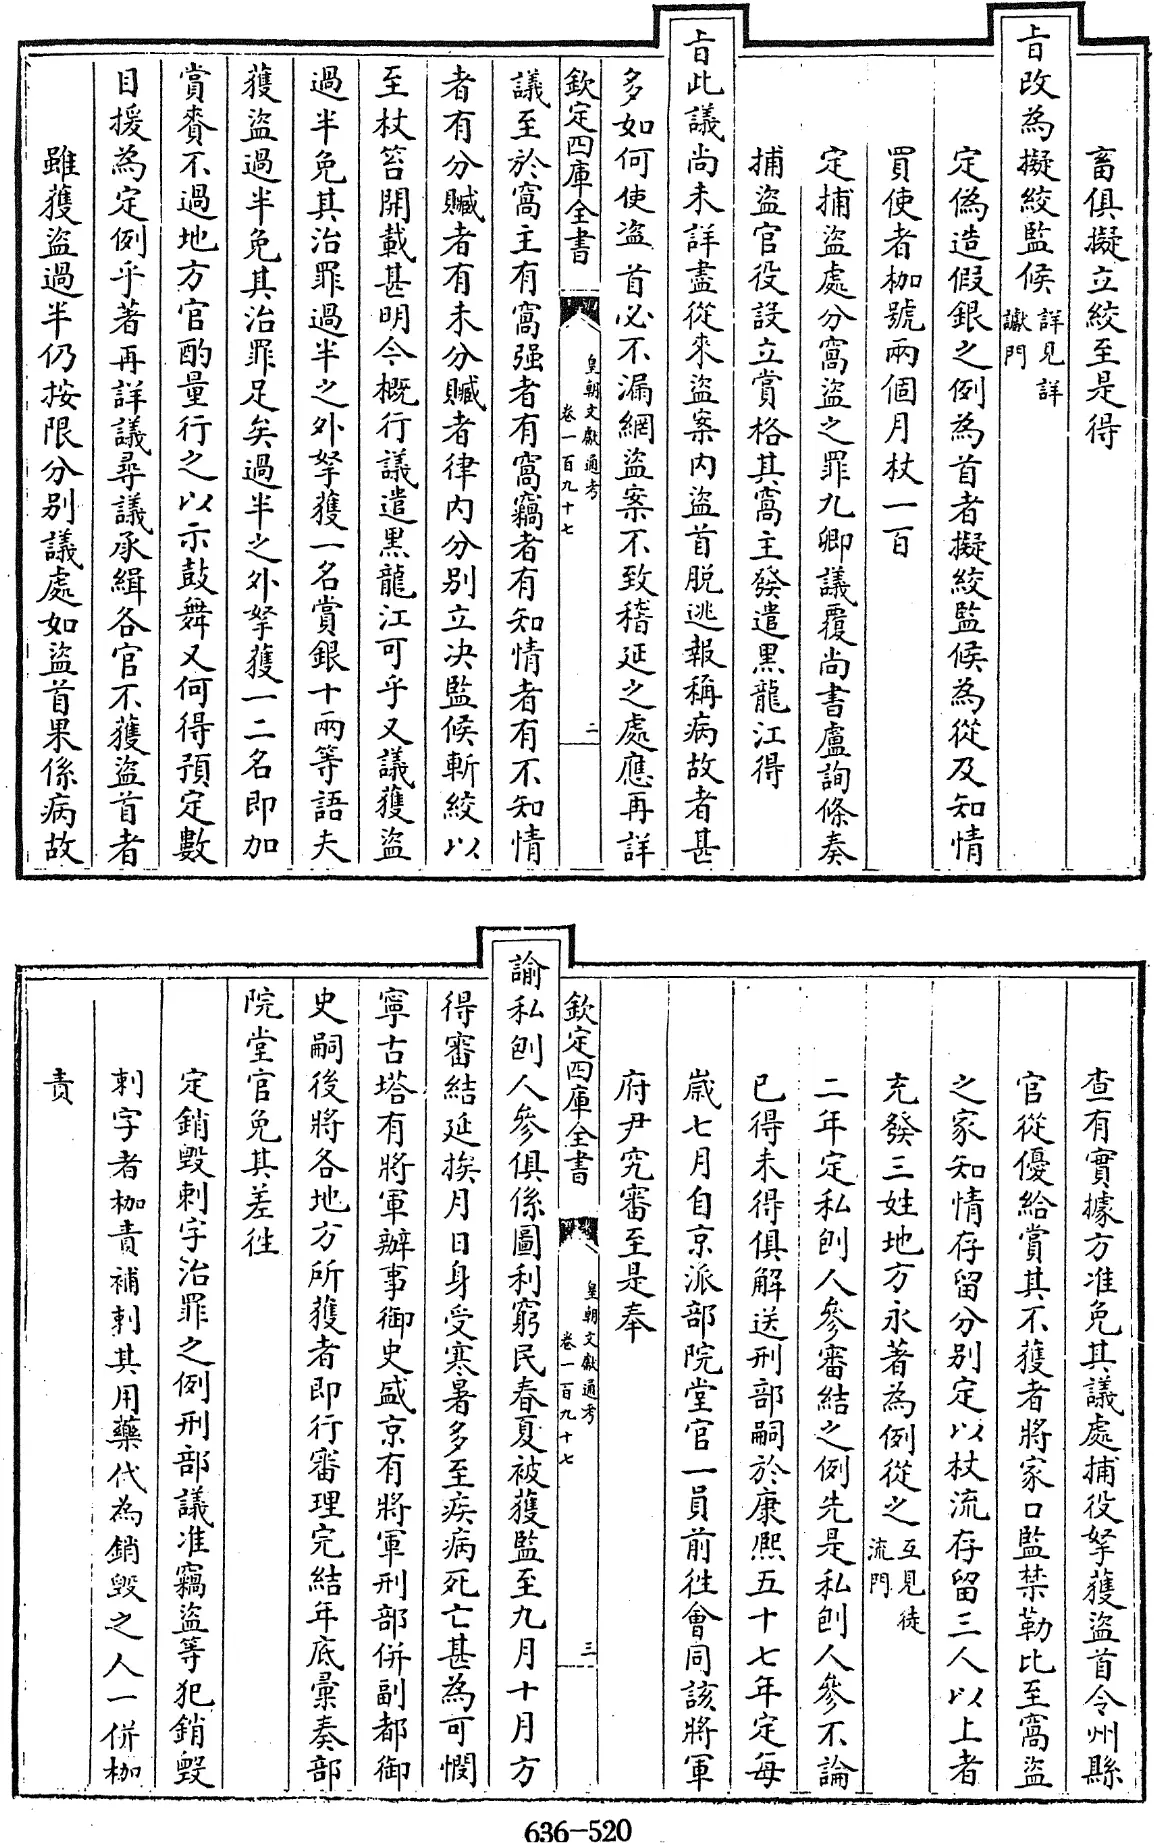 畜俱擬立絞至是得
旨改為擬絞監候詳見詳
讞門
定偽造假銀之例為首者擬絞監候為從及知情
買使者枷號兩個月杖一百
定捕盜處分窩盜之罪九卿議覆尚書盧詢條奏
捕盜官役設立賞格其窩主發遣黑龍江得
旨此議尚未詳盡從來盜案內盜首脫逃報稱病故者甚
多如何使盜首必不漏網盜案不致稽延之處應再詳
欽定四庫全書
皇朝文獻通考
卷一百九十七
二
議至於窩主有窩强者有窩竊者有知情者有不知情
者有分贓者有未分贓者律內分別立決監候斬絞以
至杖笞開載甚明今概行議遣黑龍江可乎又議獲盜
過半免其治罪過半之外拏獲一名賞銀十兩等語夫
獲盜過半免其治罪足矣過半之外拏獲一二名即加
賞賚不過地方官酌量行之以示鼓舞又何得預定數
目援為定例乎著再詳議尋議承緝各官不獲盜首者
雖獲盜過半仍按限分別議處如盜首果係病故
查有實據方准免其議處捕役拏獲盜首令州縣
官從優給賞其不獲者將家口監禁勒比至窩盜
之家知情存留分別定以杖流存留三人以上者
充發三姓地方永著為例從之互見徒
流門
二年定私刨人參審結之例先是私刨人參不論
已得未得俱解送刑部嗣於康熙五十七年定每
歲七月自京派部院堂官一員前往會同該將軍
府尹究審至是奉
欽定四庫全書
皇朝文獻通考
卷一百九十七
三
諭私刨人參俱係圖利窮民春夏被獲監至九月十月方
得審結延挨月日身受寒暑多至疾病死亡甚為可憫
寧古塔有將軍辦事御史盛京有將軍刑部併副都御
史嗣後將各地方所獲者即行審理完結年底彙奏部
院堂官免其差往
定銷毀刺字治罪之例刑部議准竊盜等犯銷毀
刺字者枷責補刺其用藥代為銷毀之人一併枷
責
636-520